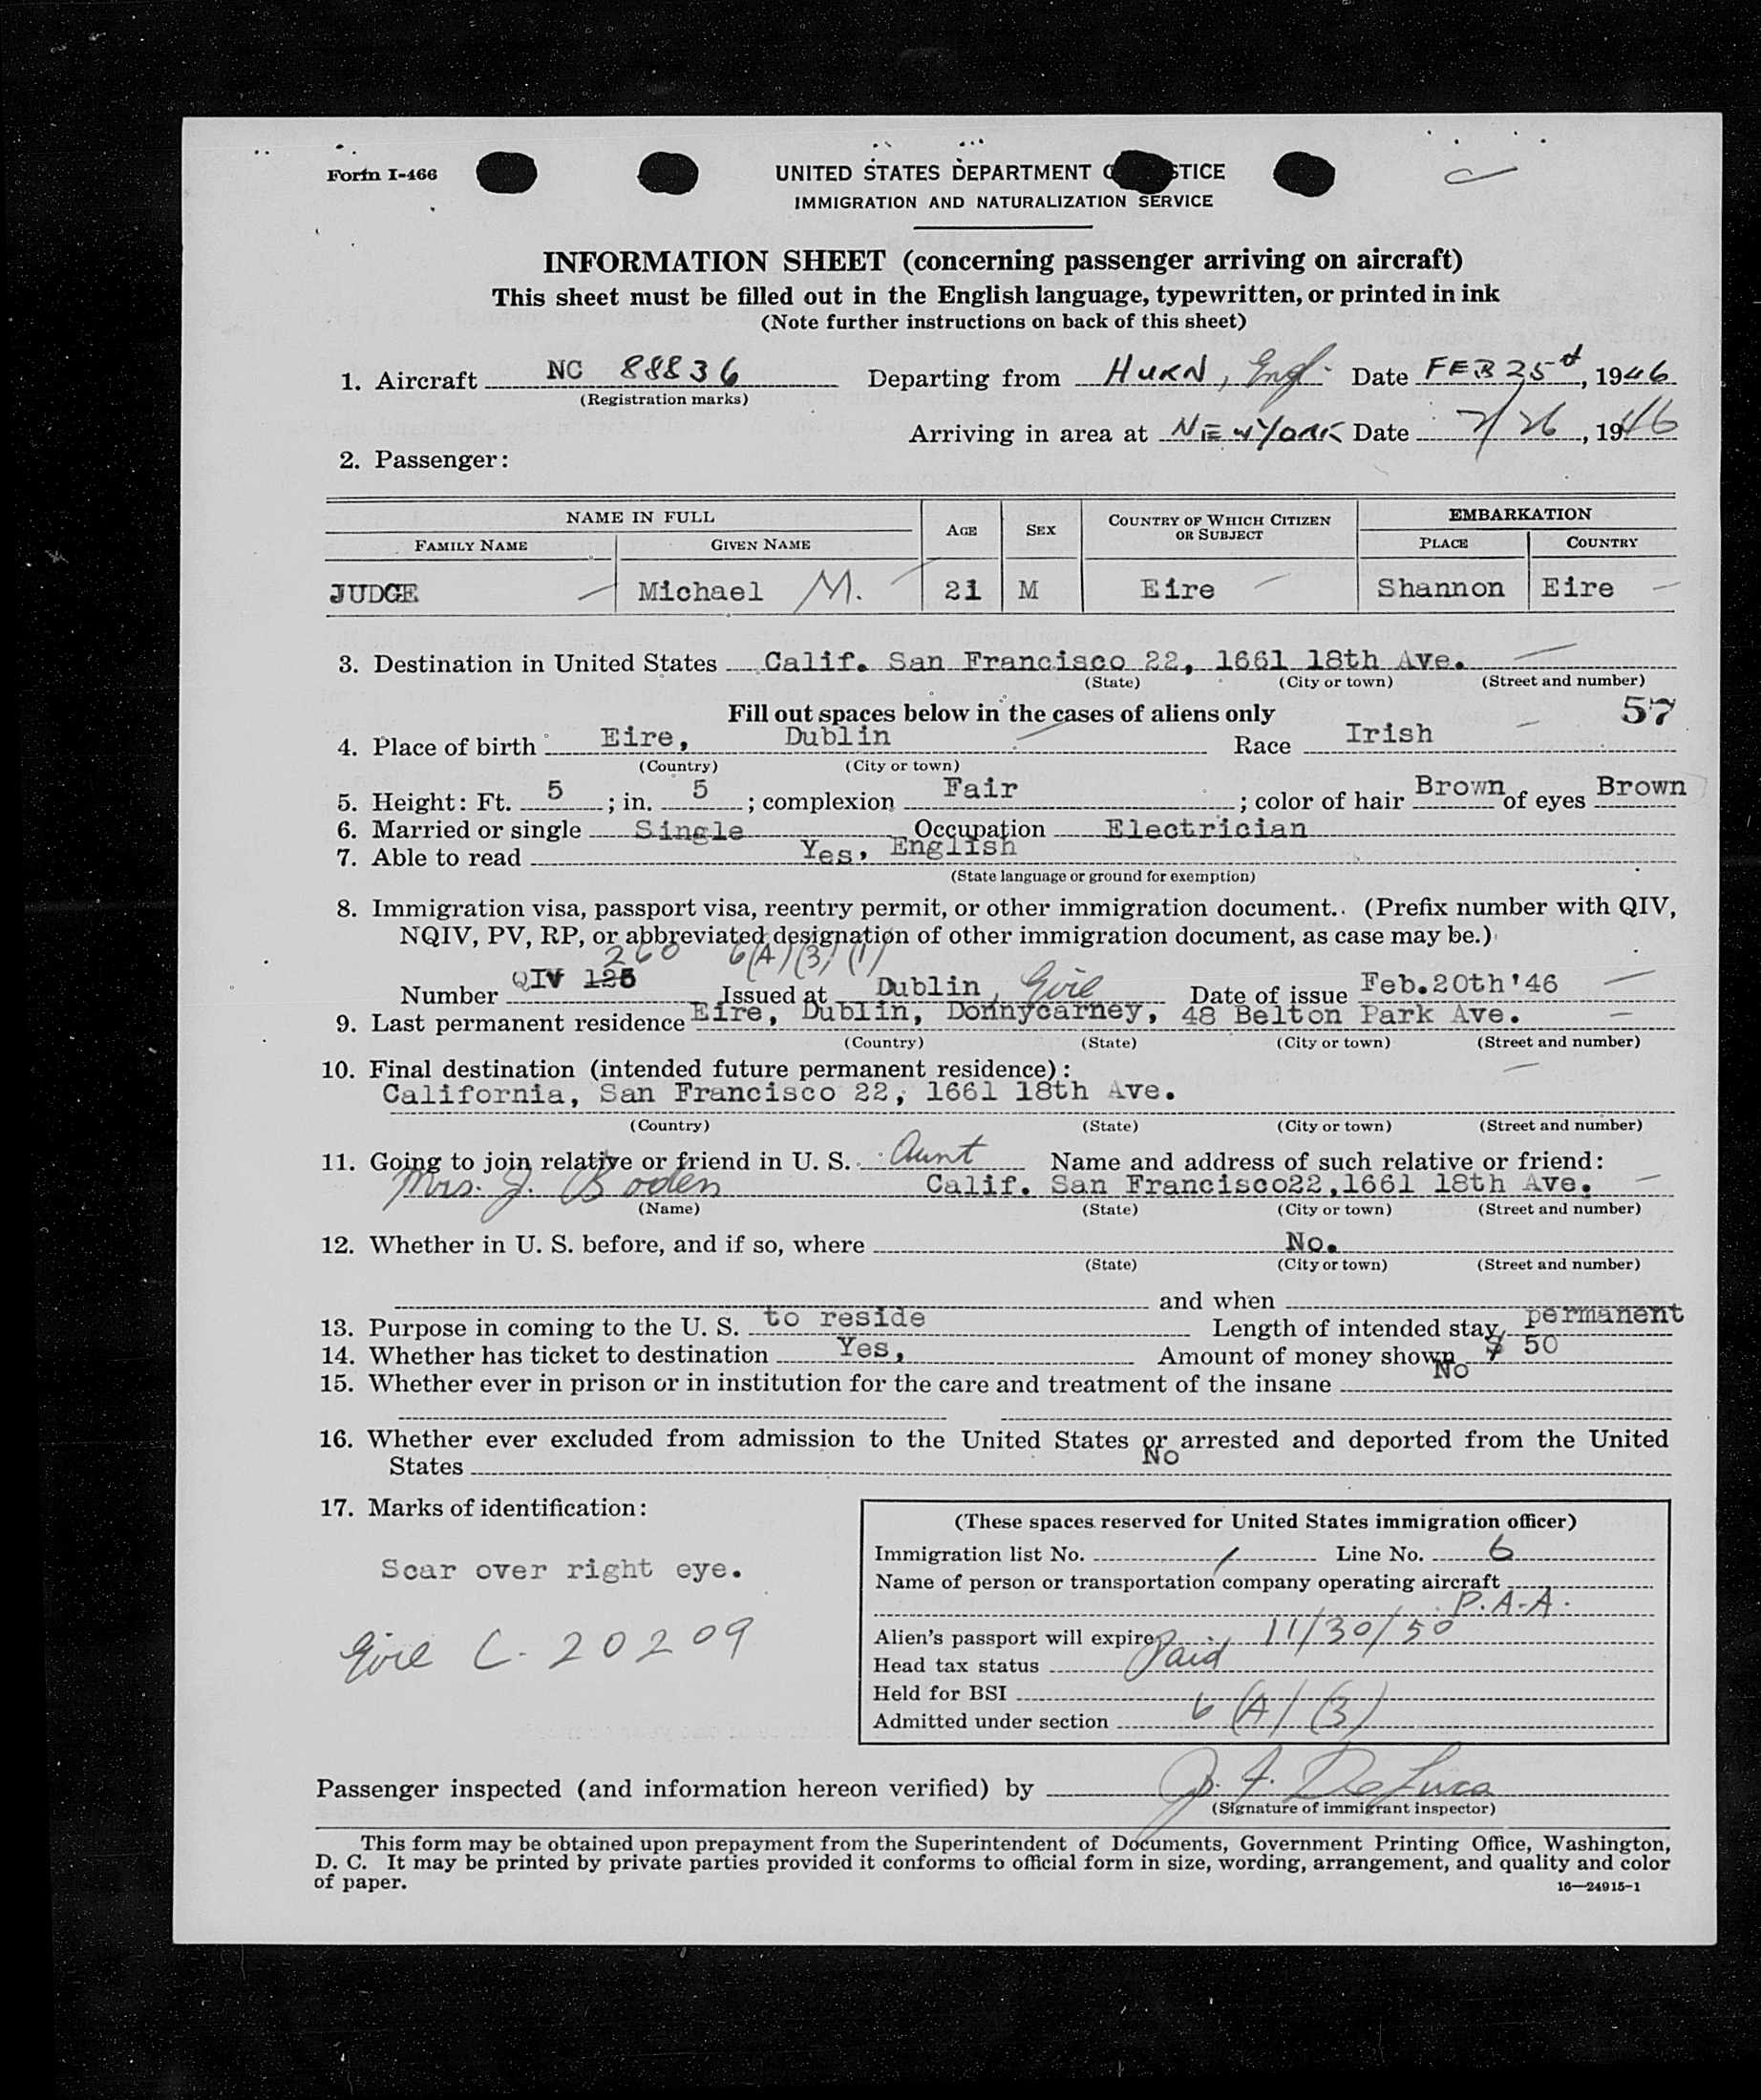 Form I-466
UNITED STATES DEPARTMENT O STICE
IMMIGRATION AND NATURALIZATION SERVICE
INFORMATION SHEET (concerning passenger arriving on aircraft)
This sheet must be filled out in the English language, typewritten, or printed in ink
(Note further instructions on back of this sheet)
1. Aircraft NC 88836 Departing from HURN, Engl. Date FEB 25, 1946
(Registration marks)
Arriving in area at NEW YORK Date 2/26, 1946
2. Passenger:
NAME IN FULL AGE SEX COUNTRY OF WHICH CITIZEN OR SUBJECT EMBARKATION
FAMILY NAME GIVEN NAME PLACE COUNTRY
JUDGE Michael M. 21 M Eire Shannon Eire
3. Destination in United States Calif. San Francisco 22, 1661 18th Ave.
(State) (City or town) (Street and number)
Fill out spaces below in the cases of aliens only 57
4. Place of birth Eire, Dublin Race Irish
(Country) (City or town)
5. Height: Ft. 5 ; in. 5 ; complexion Fair ; color of hair Brown of eyes Brown
6. Married or single Single Occupation Electrician
7. Able to read Yes, English
(State language or ground for exemption)
8. Immigration visa, passport visa, reentry permit, or other immigration document. (Prefix number with QIV,
NQIV, PV, RP, or abbreviated designation of other immigration document, as case may be.)
260 6(A)(3)(1)
Number QIV 125 Issued at Dublin, Eire Date of issue Feb.20th'46
9. Last permanent residence Eire, Dublin, Donnycarney, 48 Belton Park Ave.
(Country) (State) (City or town) (Street and number)
10. Final destination (intended future permanent residence):
California, San Francisco 22, 1661 18th Ave.
(Country) (State) (City or town) (Street and number)
11. Going to join relative or friend in U. S. Aunt Name and address of such relative or friend:
Mrs. J. Boden Calif. San Francisco22,1661 18th Ave.
(Name) (State) (City or town) (Street and number)
12. Whether in U. S. before, and if so, where No.
(State) (City or town) (Street and number)
and when
13. Purpose in coming to the U. S. to reside Length of intended stay permanent
14. Whether has ticket to destination Yes, Amount of money shown $ 50
15. Whether ever in prison or in institution for the care and treatment of the insane No
16. Whether ever excluded from admission to the United States or arrested and deported from the United
States No
17. Marks of identification:
Scar over right eye.
Eire C. 20209
(These spaces reserved for United States immigration officer)
Immigration list No. 1 Line No. 6
Name of person or transportation company operating aircraft
P.A.A.
Alien's passport will expire 11/30/50
Head tax status Paid
Held for BSI
Admitted under section 6(A)(3)
Passenger inspected (and information hereon verified) by J. F. DeLuca
(Signature of immigrant inspector)
This form may be obtained upon prepayment from the Superintendent of Documents, Government Printing Office, Washington,
D. C. It may be printed by private parties provided it conforms to official form in size, wording, arrangement, and quality and color
of paper.
16—24915-1